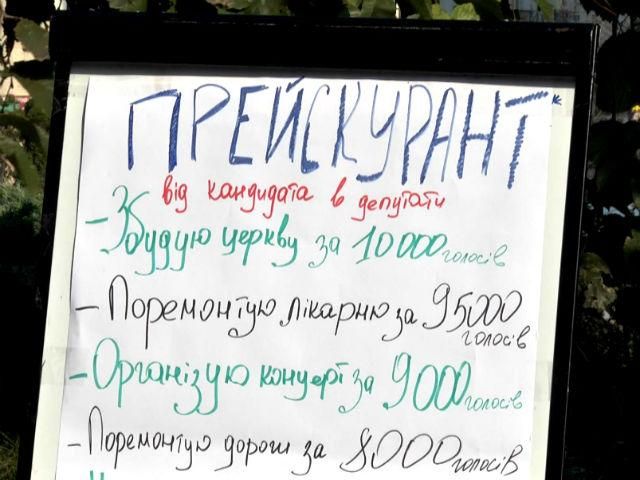 ПРЕЙСКУРАНТ
від кандидата в депутати
- Збудую церкву за 10 000 голосів
- Поремонтую лікарню за 95000 голосів
- Організую концерт за 9 000 голосів
- Поремонтую дороги за 8000 голосів